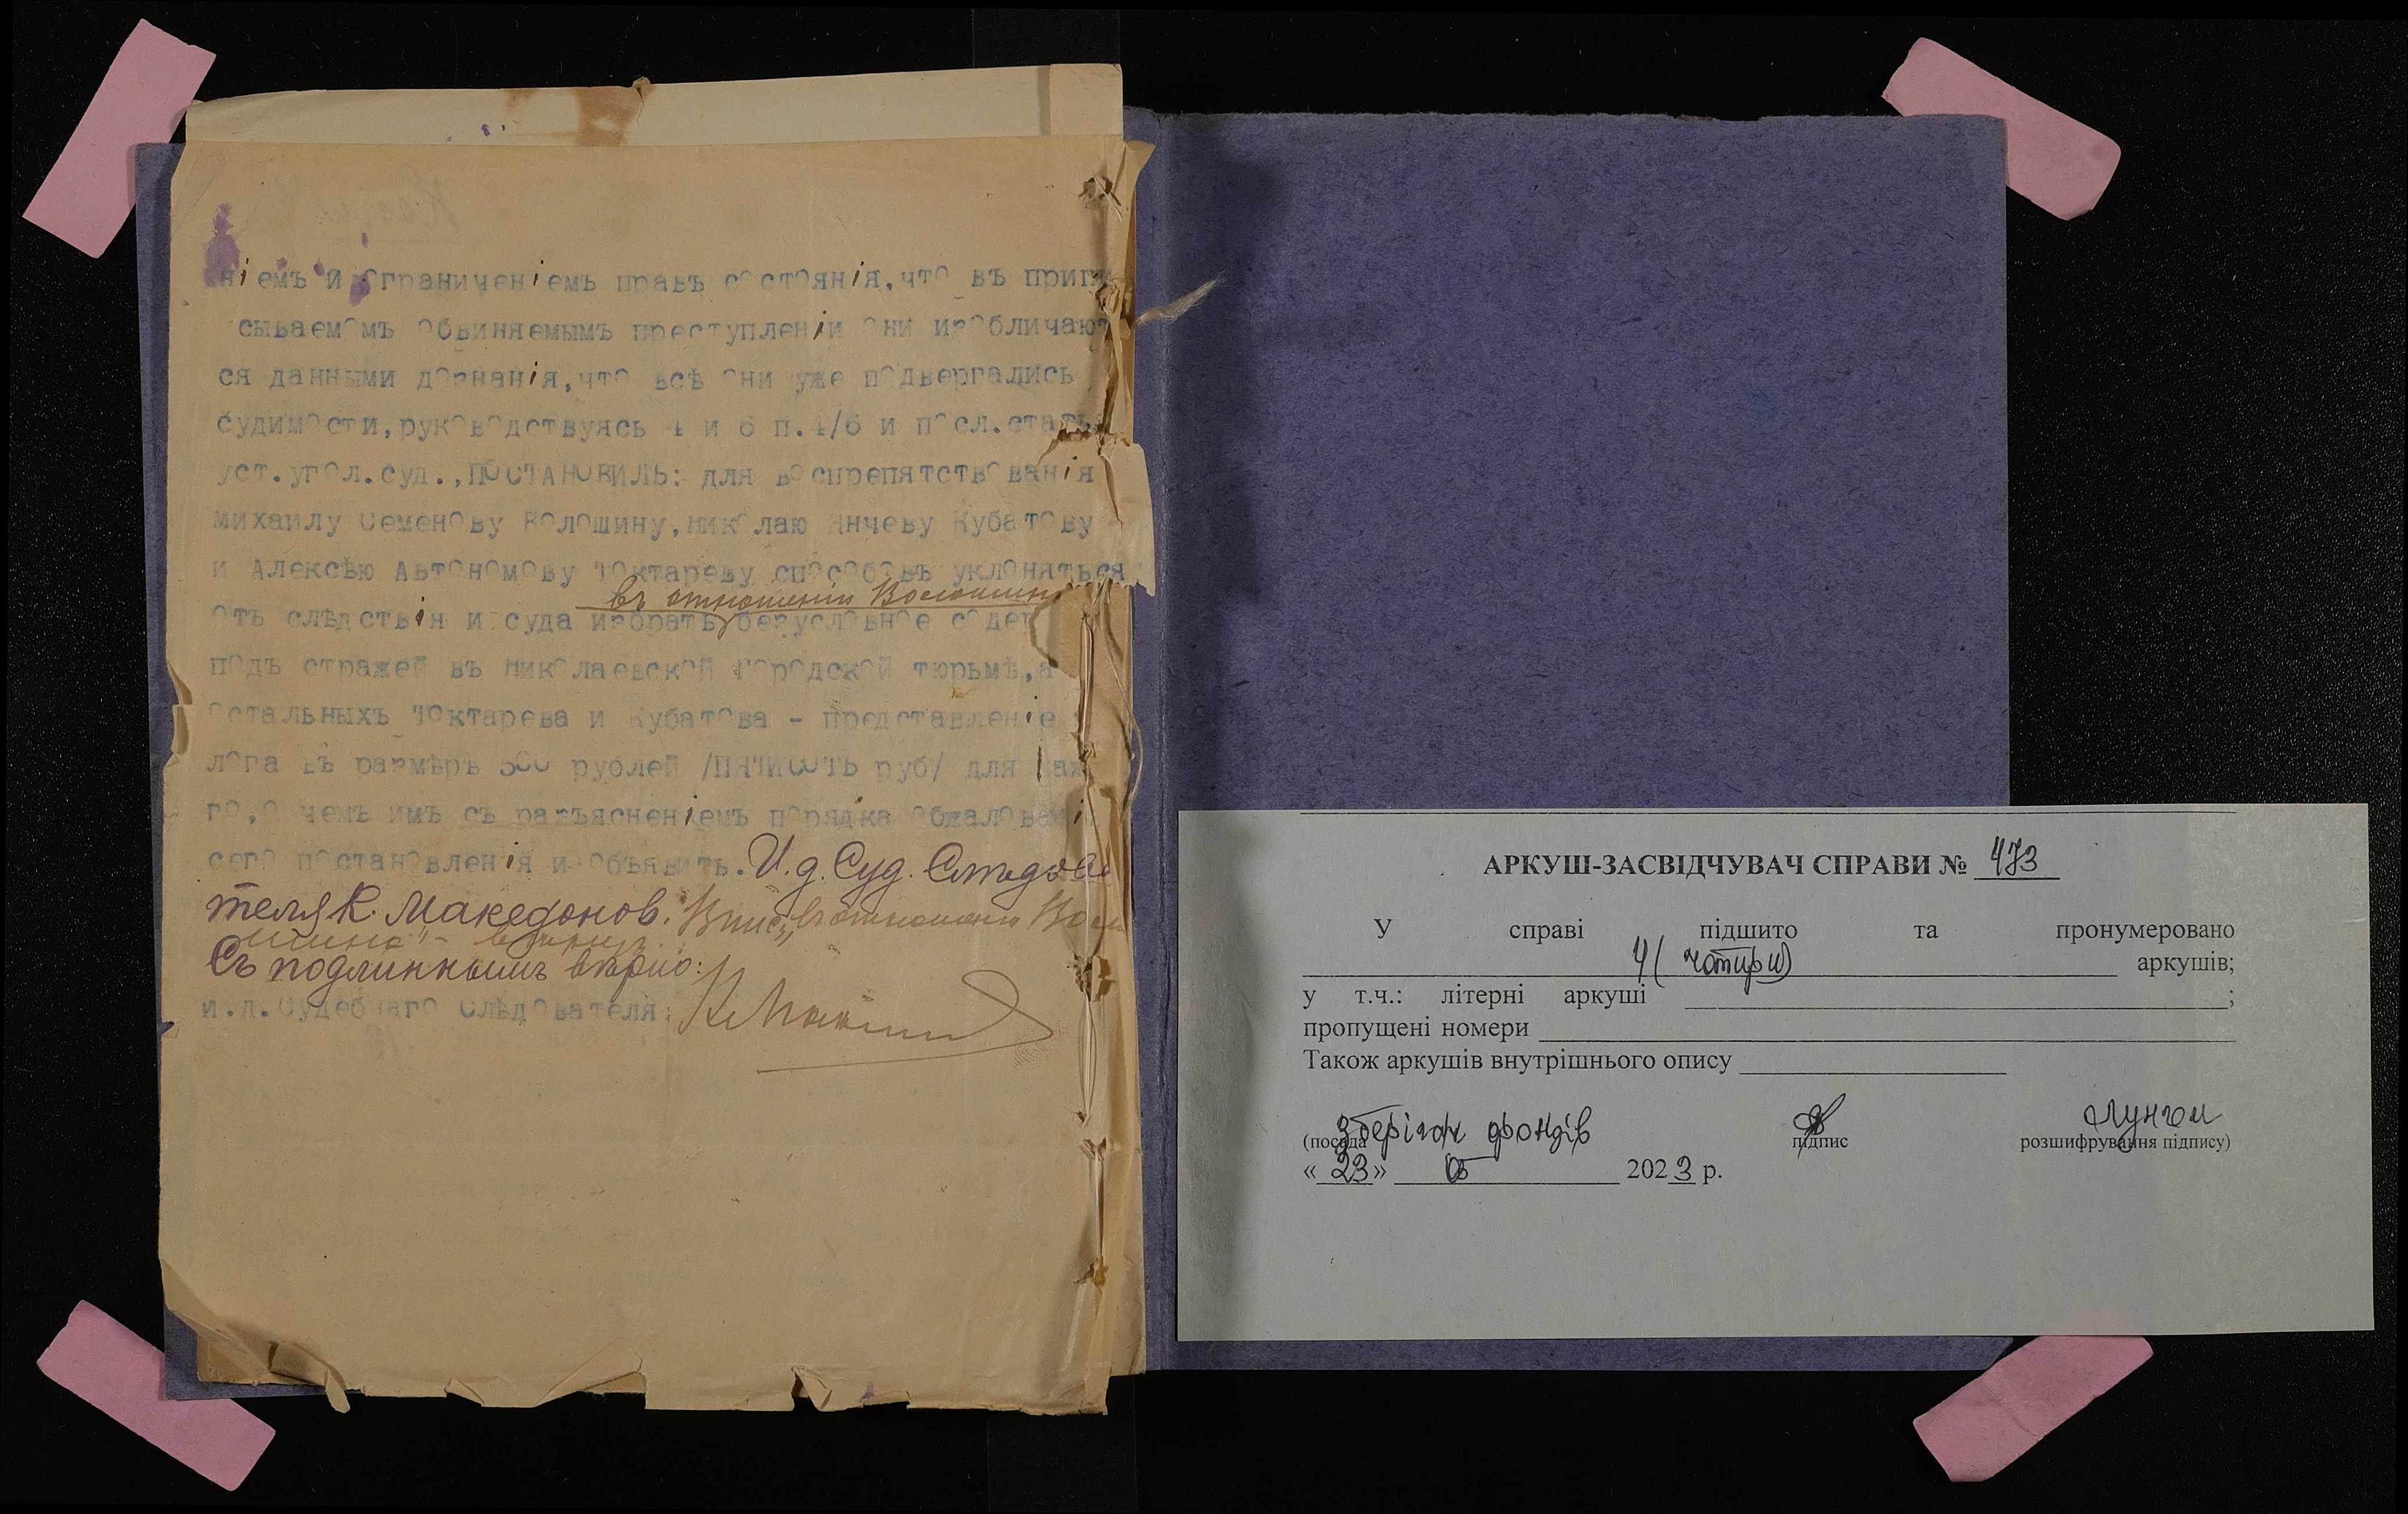 ніемъ и ограниченіемъ правъ состоянія,что въ припи
сываемомъ обвиняемымъ преступленіи они изобличают
ся данными дознанія,что всѣ они уже подвергались
судимости,руководствуясь 4 и 6 п.4/6 и посл.стать
уст.угол.суд.,ПОСТАНОВИЛЪ: для воспрепятствованія
Михаилу Семенову Волошину,Николаю Янчеву Кубатову
и Алексѣю Автономову Токтареву способовъ уклоняться
въ отношеніи Волошина
отъ слѣдствія и суда избрать безусловное содер
подъ стражей въ Николаевской Городской тюрьмѣ,а
остальныхъ Токтарева и Кубатова - представленіе
лога въ размѣрѣ 500 рублей /ПЯТИСОТЪ руб/ для каж
го,о чемъ имъ съ разъясненіемъ порядка обжаловані
сего постановленія и объявить. И.д. Суд. Слѣдова
теля К. Македонов. Впис. „въ отношеніи Воло
шина" - вѣрно.
Съ подлиннымъ вѣрно:
И.д.Судебнаго Слѣдователя
АРКУШ-ЗАСВІДЧУВАЧ СПРАВИ № 473
У справі підшито та пронумеровано
4 (чотири) аркушів;
у т.ч.: літерні аркуші ;
пропущені номери
Також аркушів внутрішнього опису
Зберігач фондів
(посада підпис розшифрування підпису)
« 23 » 05 2023 р.